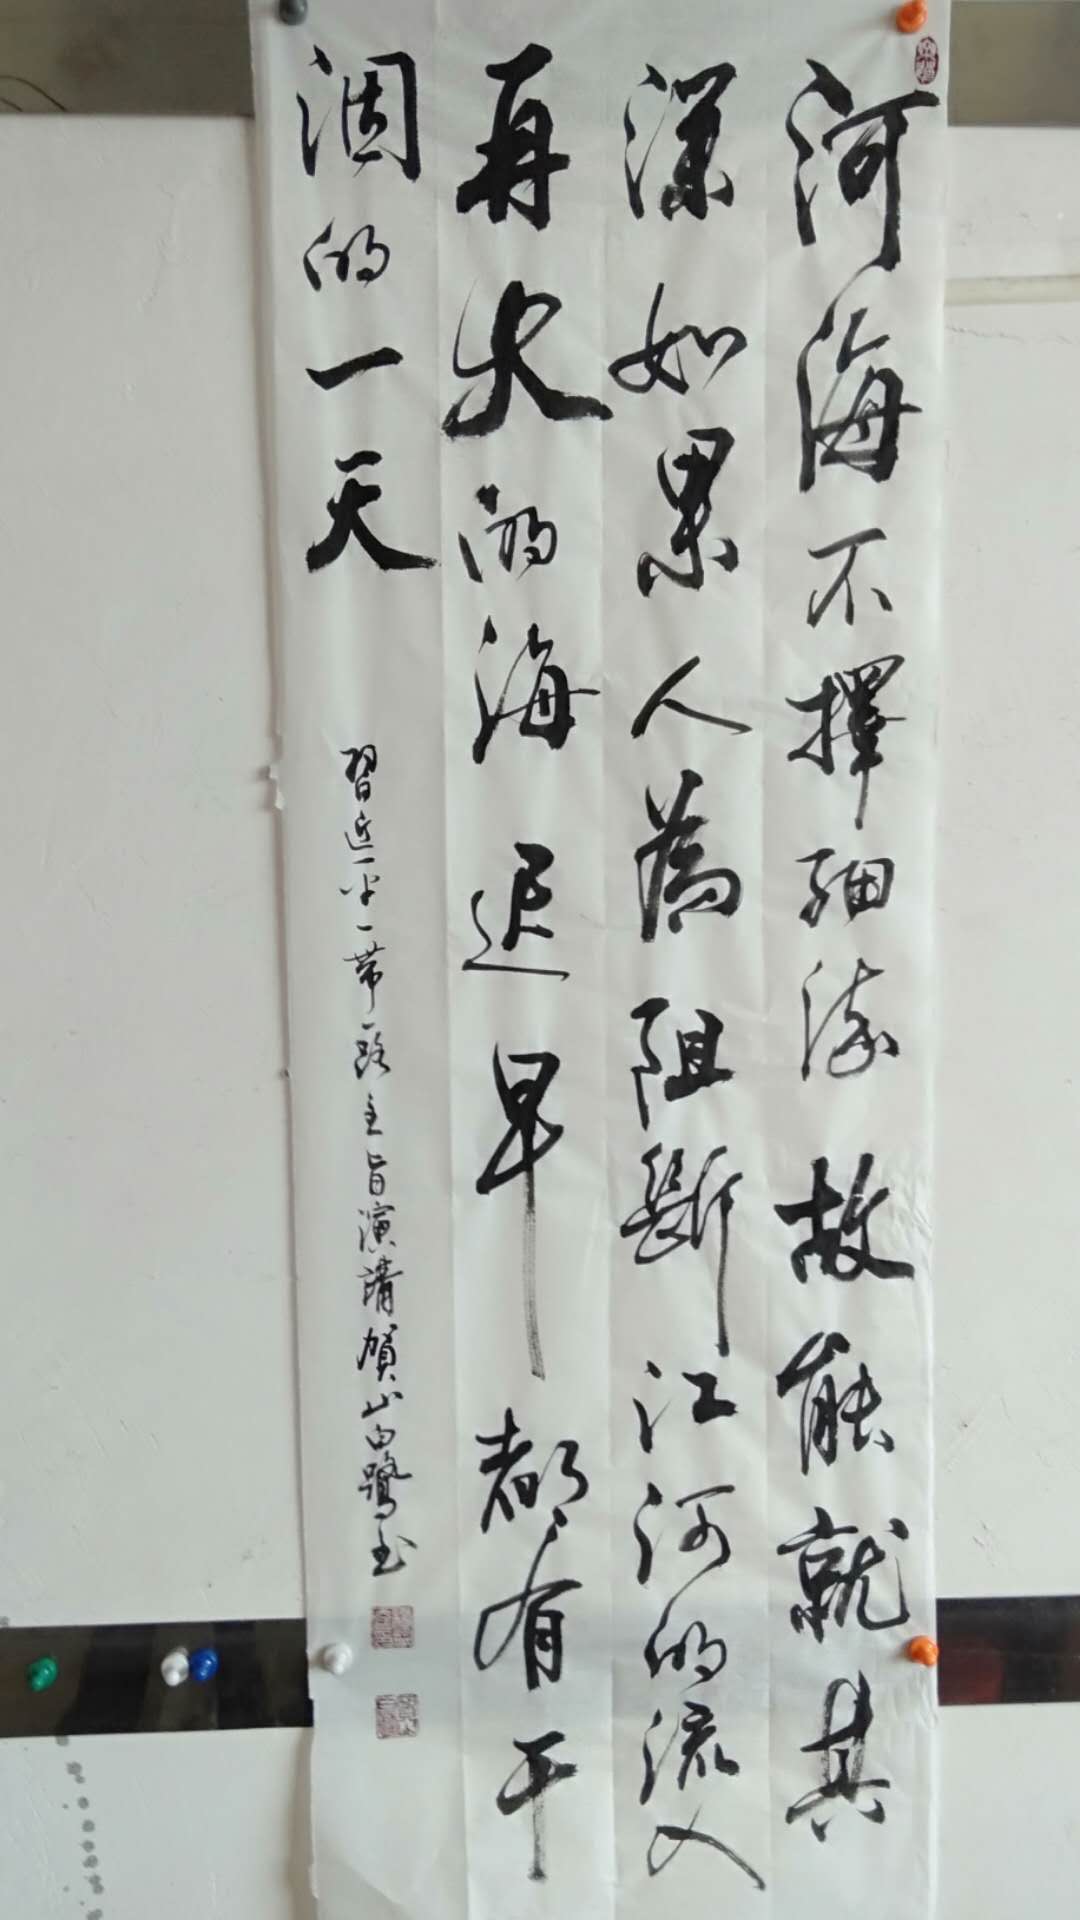 河海不擇細流故能就其
深如果人為阻斷江河的流入
再大的海迟早都有干
涸的一天
習近平一带一路主旨演講賀山白鷺書